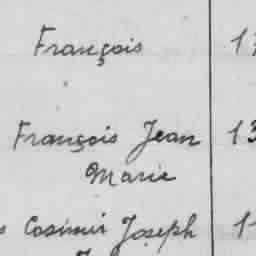 François 1
François Jean 13
Marie
Casimir Joseph 1